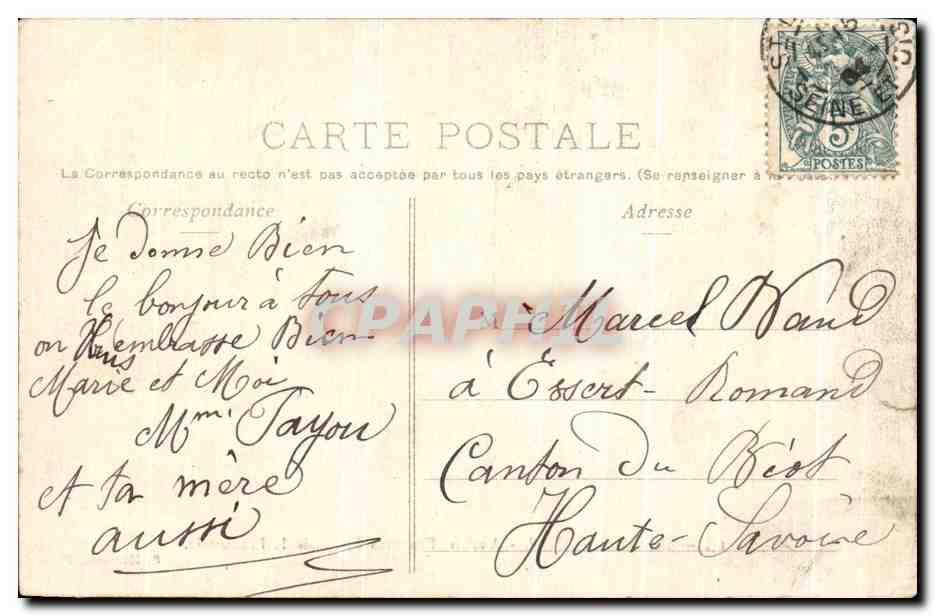 CARTE POSTALE
La Correspondance au recto n'est pas acceptée par tous les pays étrangers. (Se renseigner à la
Correspondance
Adresse
SEINE
5c
POSTES
Je donne Bien
le bonjour à tous
on vous embrasse Bien
Marie et Moi
Mme Tayou
et ta mère
aussi
à Marcel Naud
à Essert-Romand
Canton du Biot
Haute-Savoie
CPAPHIL